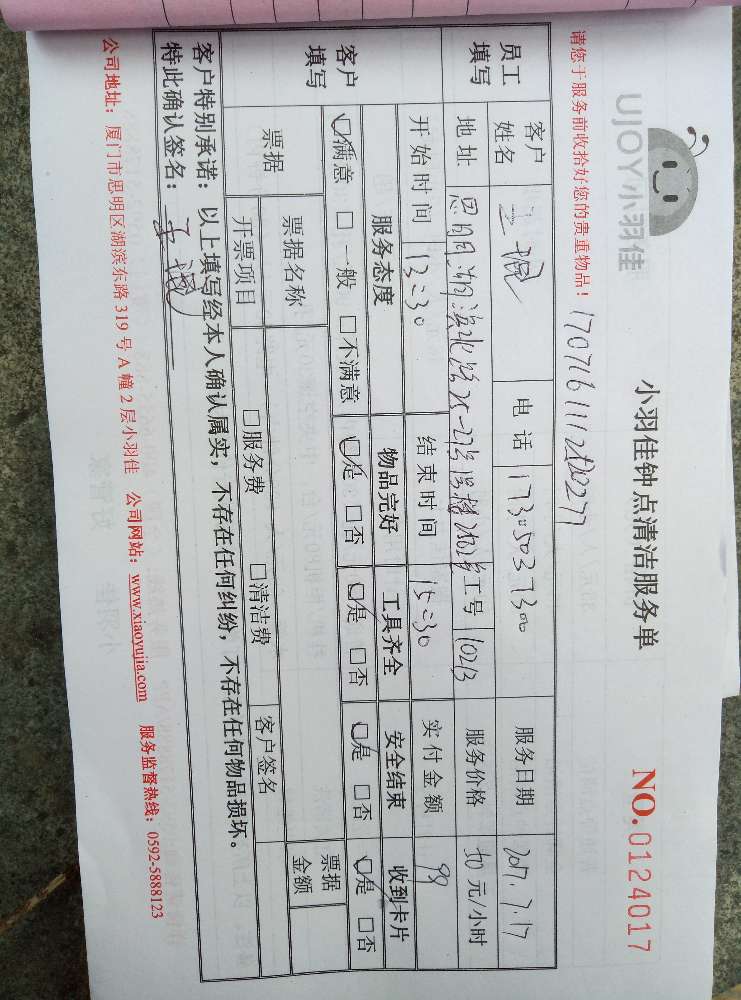 UJOY小羽佳
小羽佳钟点清洁服务单
NO.0124017
请您于服务前收拾好您的贵重物品！
员工填写 客户姓名 电话 服务日期 2017.7.17
地址 工号 10213 服务价格 30元/小时
开始时间 13:30 结束时间 15:30 实付金额 99
客户填写 服务态度 物品完好 工具齐全 安全结束 收到卡片
☑满意 □一般 □不满意 ☑是 □否 ☑是 □否 ☑是 □否 ☑是 □否
票据 票据名称 票据金额
开票项目 □服务费 □清洁费 客户签名
客户特别承诺：以上填写经本人确认属实，不存在任何纠纷，不存在任何物品损坏。
特此确认签名：
公司地址：厦门市思明区湖滨东路319号A幢2层小羽佳 公司网站：www.xiaoyujia.com 服务监督热线：0592-5888123